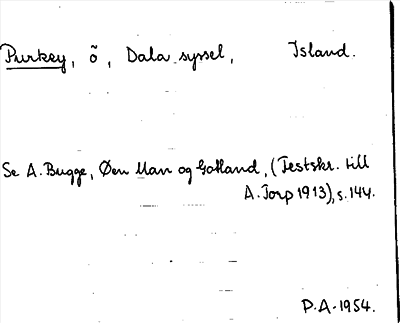 Purkey, õ, Dala syssel, Island.
Se A. Bugge, Øen Man og Gotland, (Festskr. till
A. Torp 1913), s. 144.
P.A. 1954.